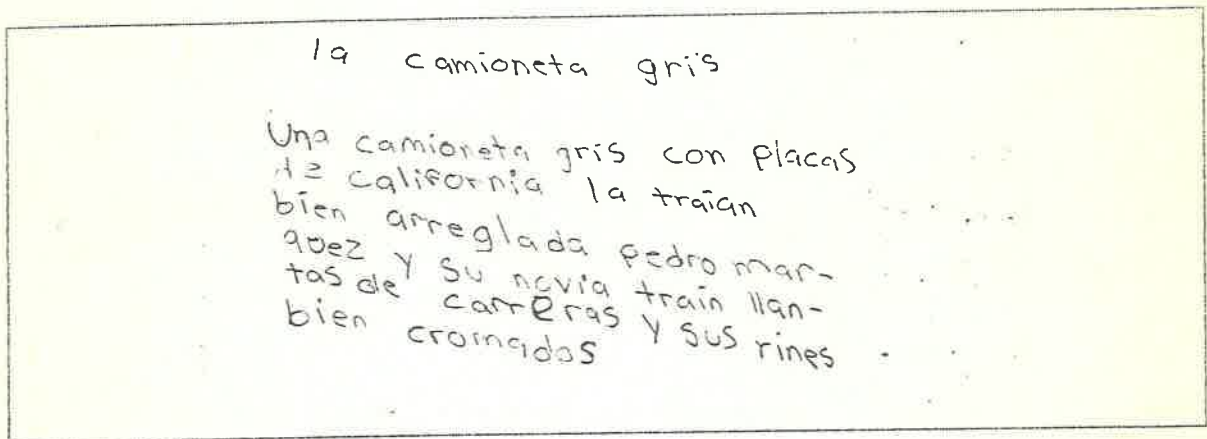 la camioneta gris
Una camioneta gris con placas
de california la traían
bien arreglada pedro mar-
quez y su novia train llan-
tas de carreras y sus rines
bien cromados